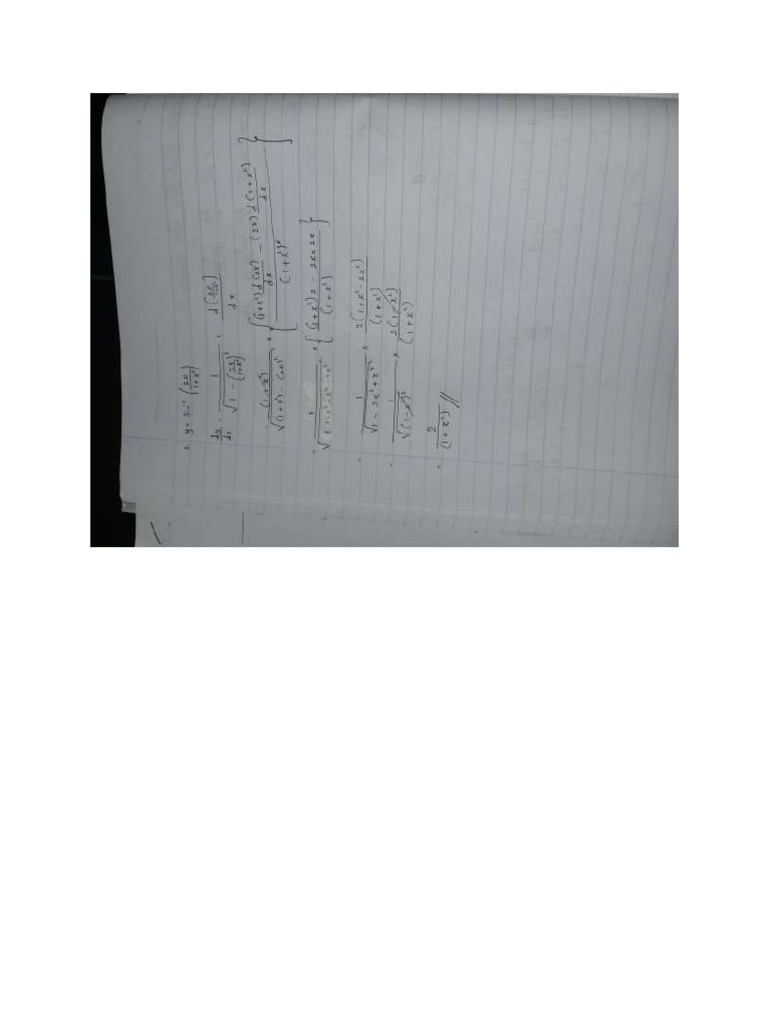 2. y = Sin⁻¹ (2x/(1+x²))
dy/dx = 1/√(1 - (2x/(1+x²))²) · d(2x/(1+x²))/dx
(1+x²)/√((1+x²)² - (2x)²) × {((1+x²) d(2x)/dx - (2x) d(1+x²)/dx)/(1+x²)²}
= 1/√(1+2x²+x⁴-4x²) × {((1+x²)2 - 2x×2x)/(1+x²)}
= 1/√(1-2x²+x⁴) × 2(1+x²-2x²)/(1+x²)
= 1/√((1-x²)²) × 2(1-x²)/(1+x²)
= 2/(1+x²) //